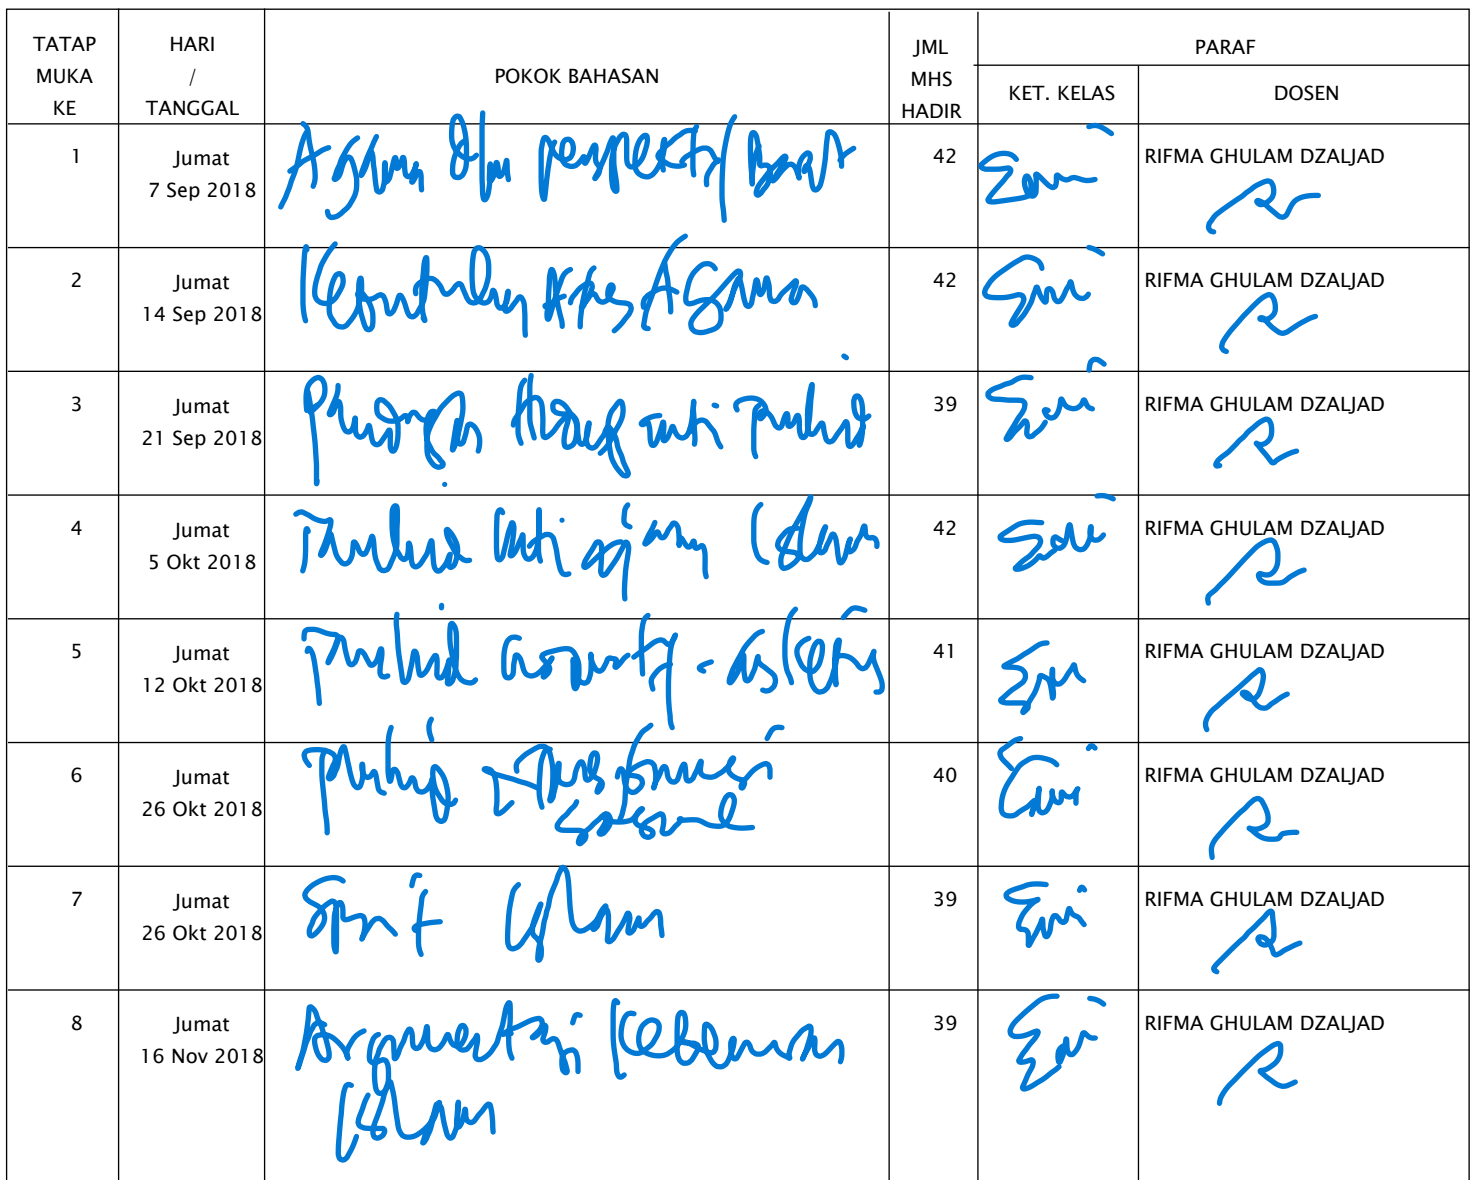 TATAP MUKA KE HARI / TANGGAL POKOK BAHASAN JML MHS HADIR PARAF
KET. KELAS DOSEN
1 Jumat 7 Sep 2018 Agama dlm perspektif Barat 42 RIFMA GHULAM DZALJAD
2 Jumat 14 Sep 2018 Kebutuhan Agama 42 RIFMA GHULAM DZALJAD
3 Jumat 21 Sep 2018 Tauhid 39 RIFMA GHULAM DZALJAD
4 Jumat 5 Okt 2018 Tauhid inti ajaran Islam 42 RIFMA GHULAM DZALJAD
5 Jumat 12 Okt 2018 Tauhid 41 RIFMA GHULAM DZALJAD
6 Jumat 26 Okt 2018 Tauhid 40 RIFMA GHULAM DZALJAD
7 Jumat 26 Okt 2018 Spirit Islam 39 RIFMA GHULAM DZALJAD
8 Jumat 16 Nov 2018 Argumentasi Kebenaran 39 RIFMA GHULAM DZALJAD
Islam